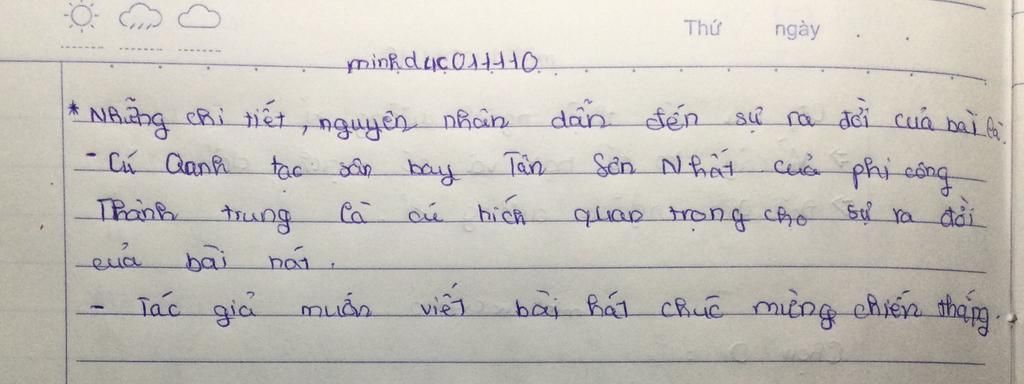 Thứ ngày . .
minhduc011110
* Những chi tiết, nguyên nhân dẫn đến sự ra đời của bài là:
- Cú Oanh tạc sân bay Tân Sơn Nhất của phi công
Thành trung là cú hích quan trọng cho sự ra đời
của bài hát.
- Tác giả muốn viết bài hát chúc mừng chiến thắng.